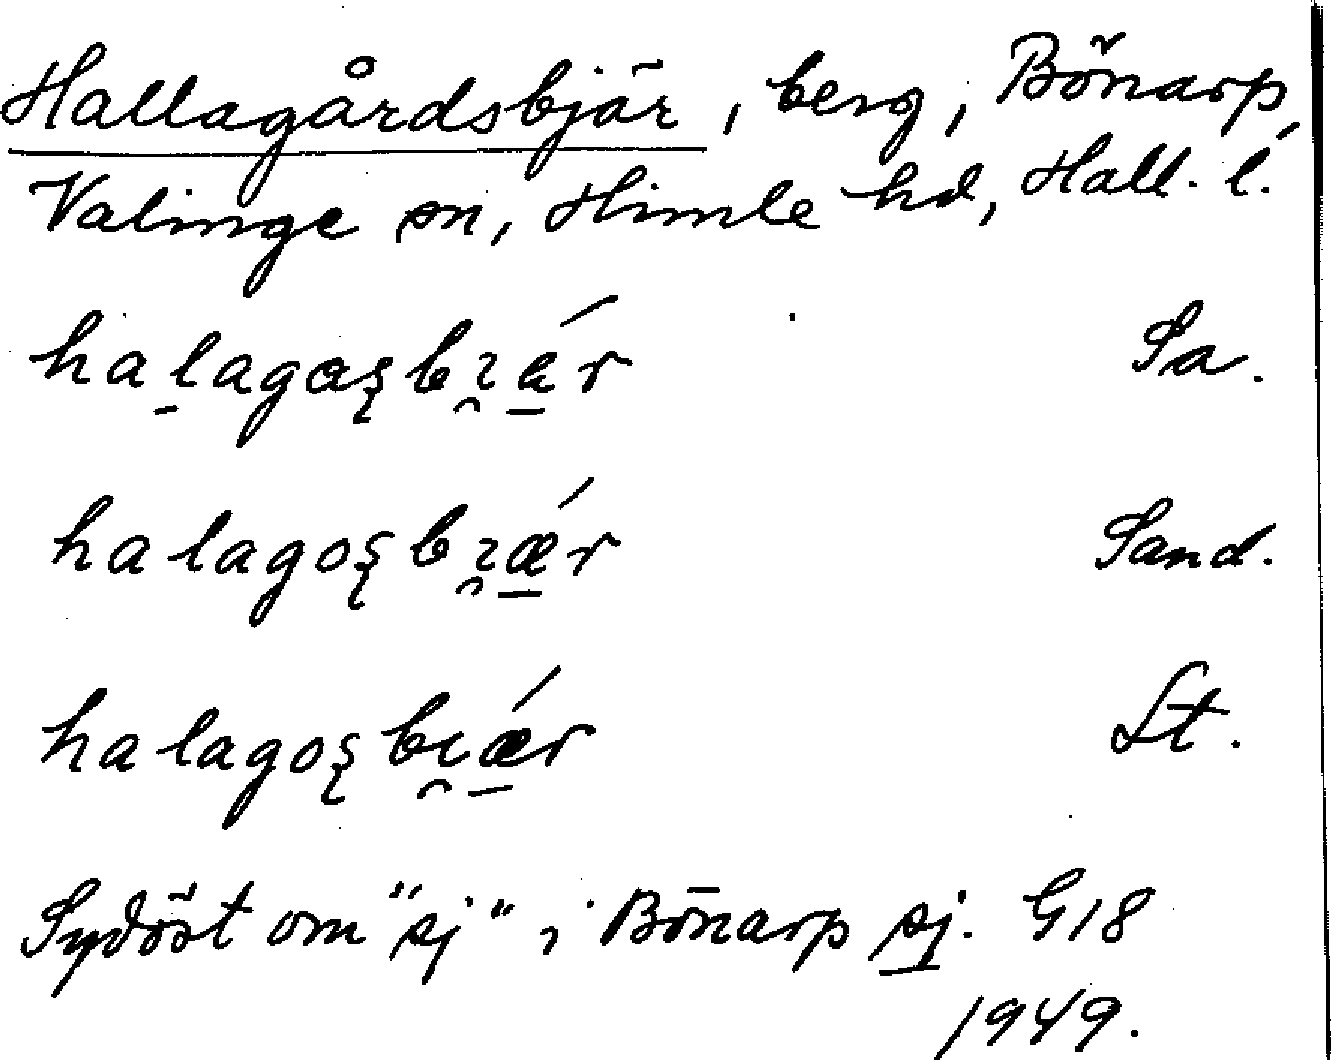 Hallagårdsbjär, berg, Bönarp,
Valinge sn, Himle hd, Hall. l.
Sa.
halagoʂbɪ̯ǽr Sand.
halagoʂbɪ̯ǽr St.
Sydöst om "sj" i Bönarp sj. G18
1949.